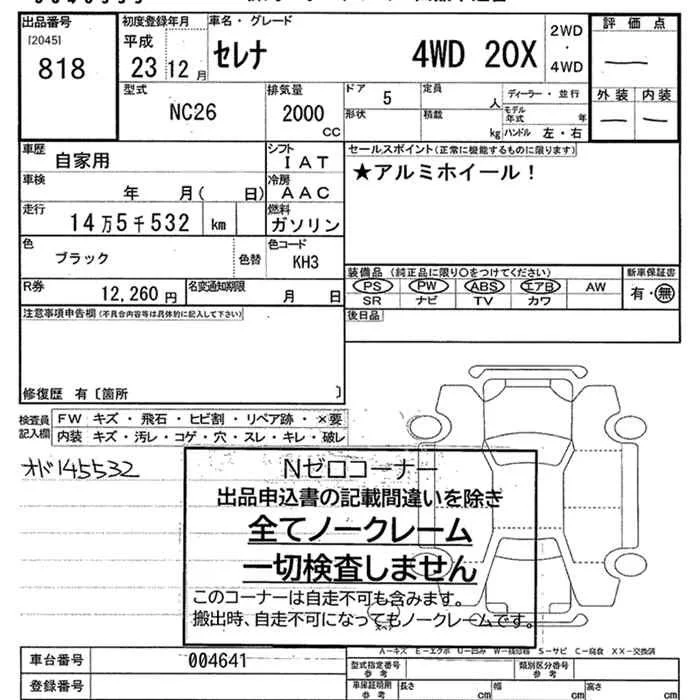 出品番号
[2045]
818
初度登録年月
平成
23 12月
車名・グレード
セレナ 4WD 20X
2WD
・
4WD
評価点
—
外装 内装
— —
型式
NC26
排気量
2000
CC
ドア
5
定員
人
ディーラー・並行
形状
積載
kg
モデル年式 年
ハンドル 左・右
車歴
自家用
シフト
IAT
セールスポイント(正常に機能するものに限ります)
★アルミホイール！
車検
年 月( 日)
冷房
AAC
走行
14万5千532 km
燃料
ガソリン
色
ブラック
色替
色コード
KH3
装備品(純正品に限り○をつけてください)
PS PW ABS エアB AW
SR ナビ TV カワ
新車保証書
有・無
R券
12,260円
名変通知期限
月 日
注意事項申告欄(不具合内容等は具体的に記入して下さい)
後日品
修復歴 有〔箇所 〕
検査員
記入欄
FW キズ・飛石・ヒビ割・リペア跡・×要
内装 キズ・汚レ・コゲ・穴・スレ・キレ・破レ
オド145532
Nゼロコーナー
出品申込書の記載間違いを除き
全てノークレーム
一切検査しません
このコーナーは自走不可も含みます。
搬出時、自走不可になってもノークレームです。
A−キズ E−エクボ U−凹み W−補修跡 S−サビ C−腐食 XX−交換済
車台番号
004641
登録番号
型式指定番号
参考
類別区分番号
参考
車庫証明用
参考
長さ cm
幅 cm
高さ cm